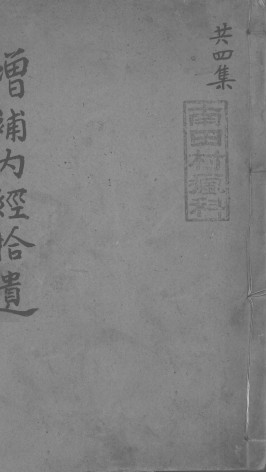 共四集
南田村瘋科
增補内經拾遺